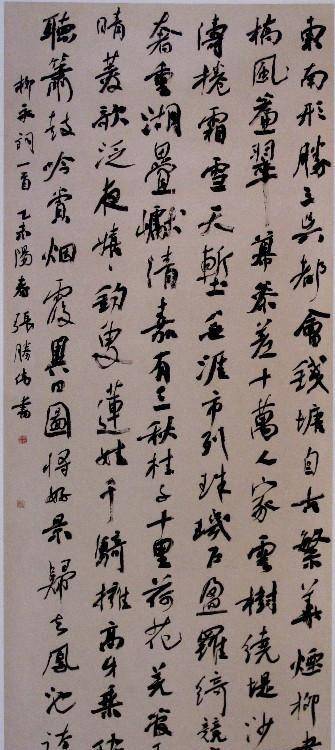 東南形勝三吳都會錢塘自古繁華煙柳畫
橋風簾翠幕參差十萬人家雲樹繞堤沙
濤捲霜雪天塹無涯市列珠璣戶盈羅綺競
奢重湖疊巘清嘉有三秋桂子十里荷花羌管
晴菱歌泛夜嬉〻釣叟蓮娃千騎擁高牙乘
聽簫鼓吟賞烟霞異日圖將好景歸去鳳池誇
柳永詞一首 乙未陽春張勝偉書